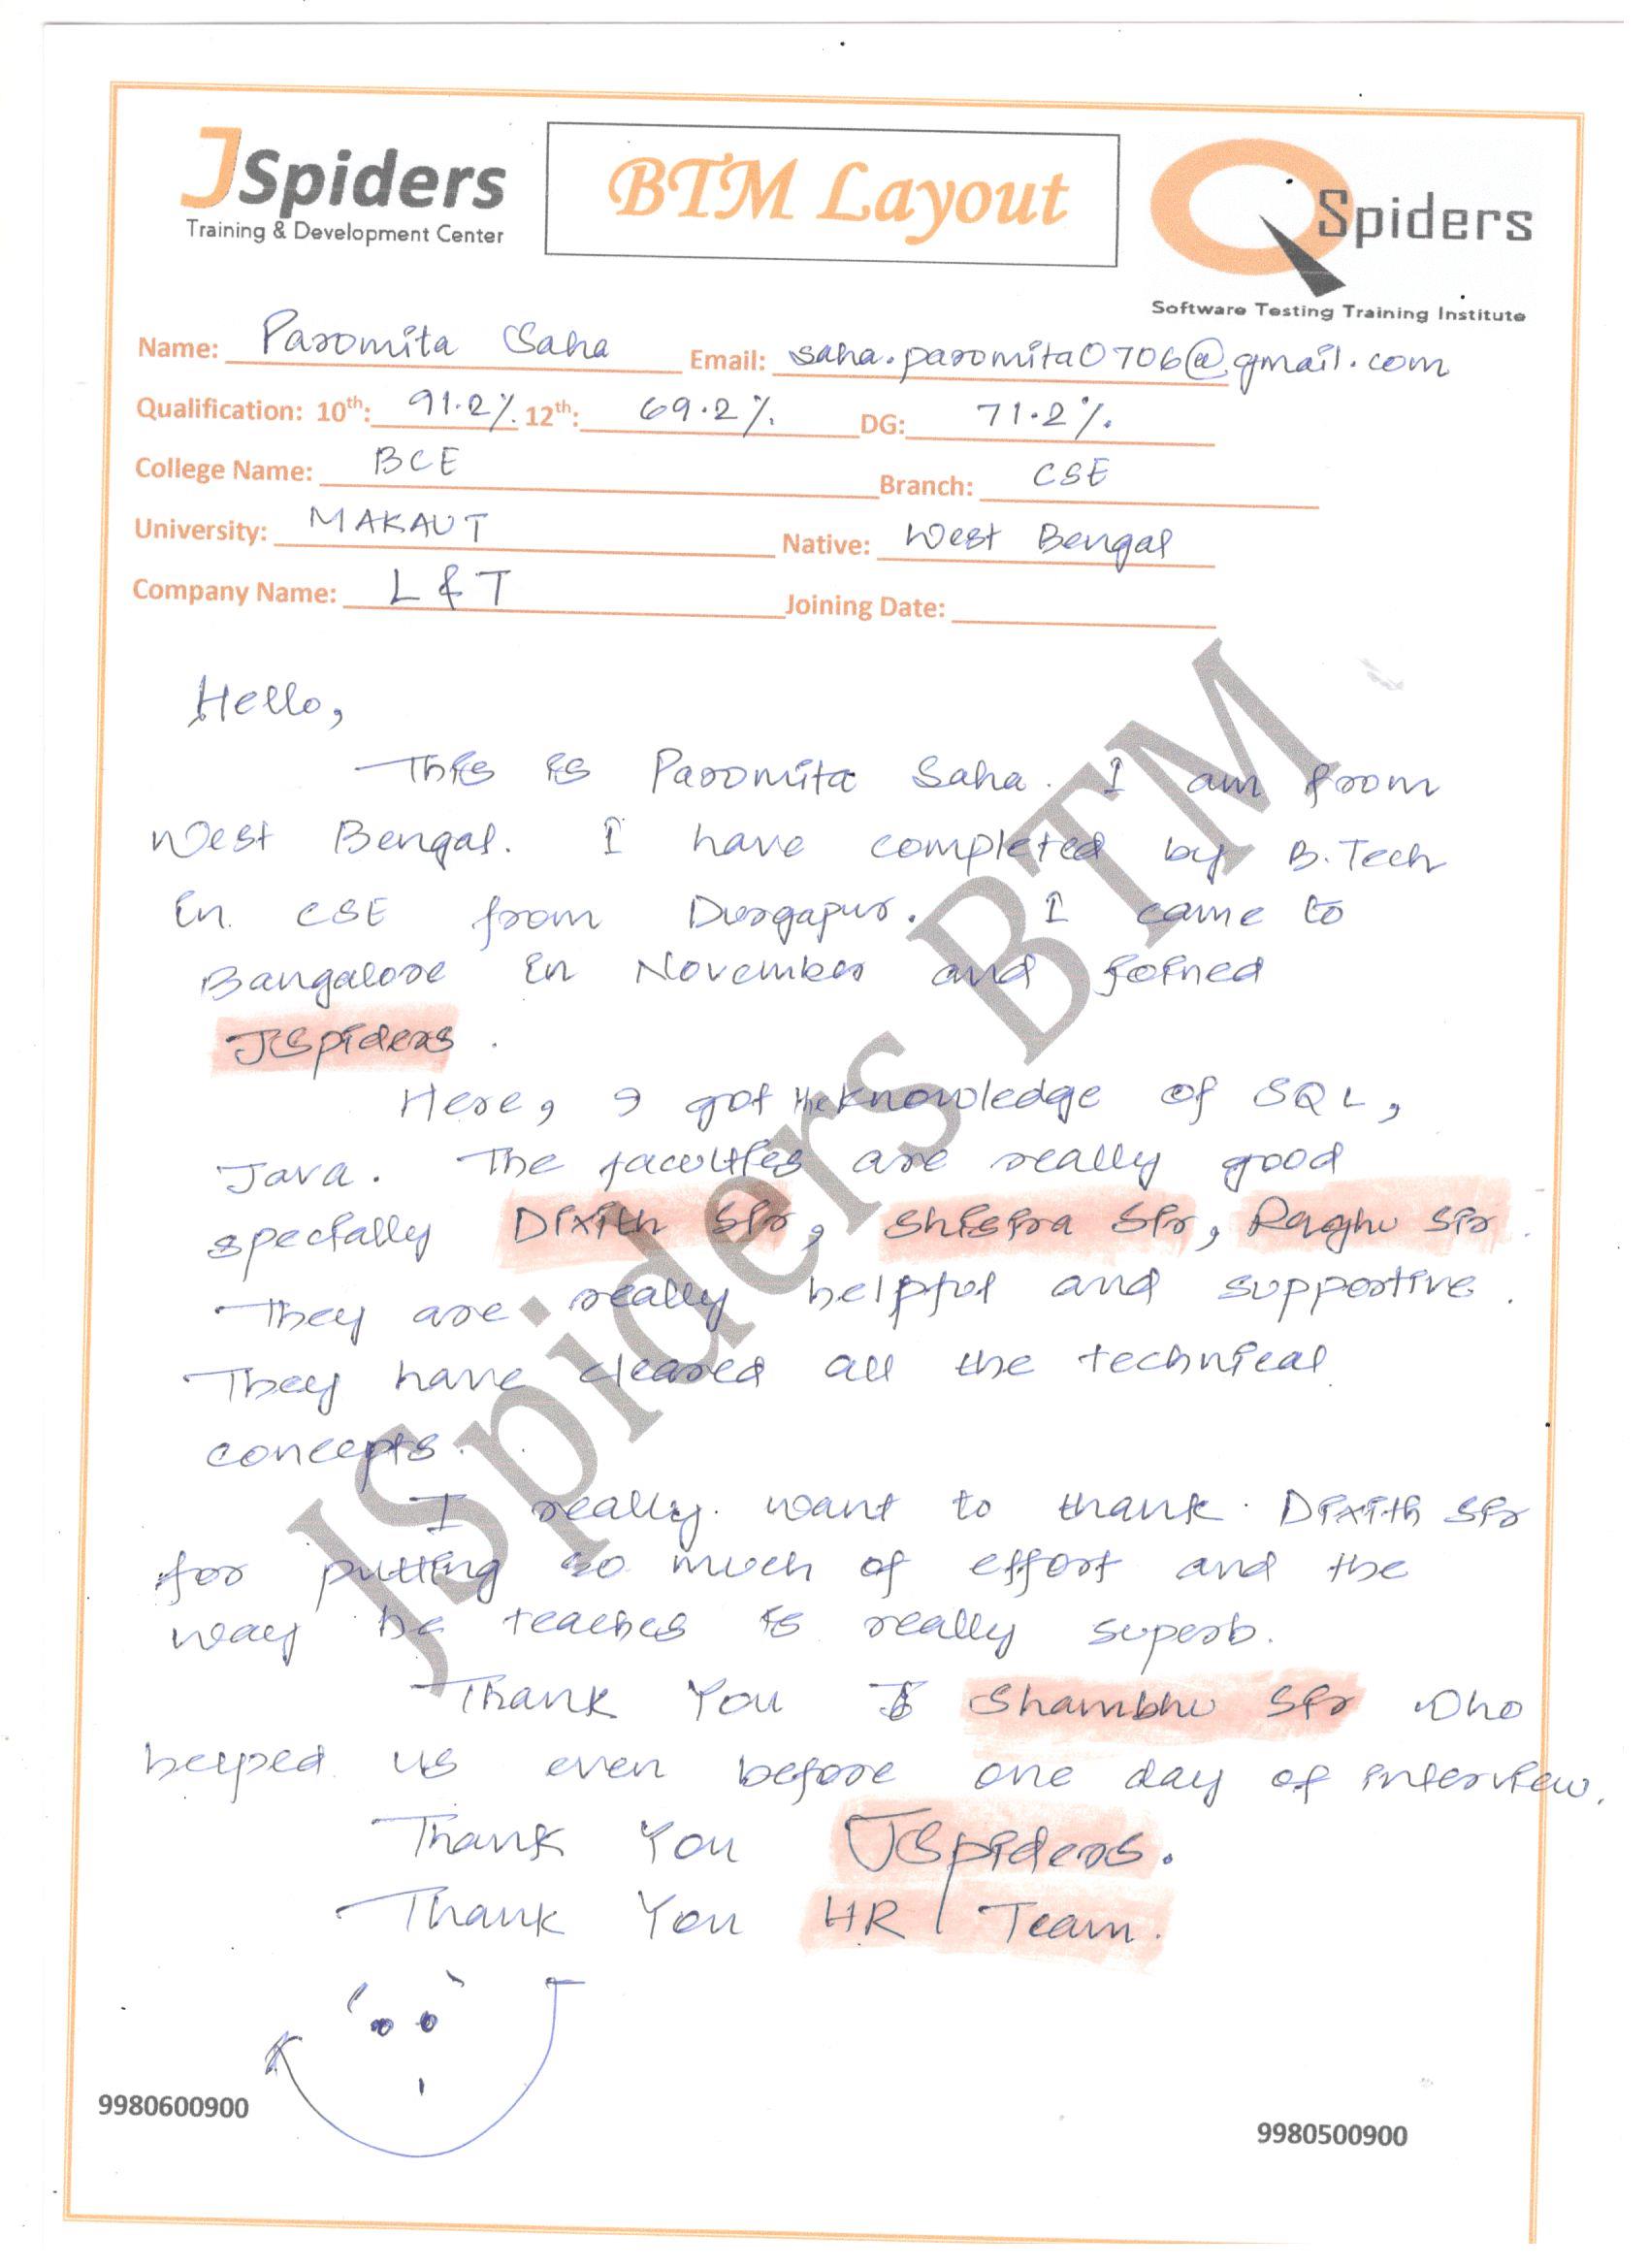 JSpiders
Training & Development Center
BTM Layout
QSpiders
Software Testing Training Institute
Name: Paromita Saha Email: saha.paromita0706@gmail.com
Qualification: 10th: 91.2% 12th: 69.2% DG: 71.2%.
College Name: BCE Branch: CSE
University: MAKAUT Native: West Bengal
Company Name: L & T Joining Date:
Hello,
This is Paromita Saha. I am from
West Bengal. I have completed by B.Tech
in CSE from Durgapur. I came to
Bangalore in November and joined
JSpiders.
Here, I got the knowledge of SQL,
Java. The faculties are really good
specially Dixith Sir, Shisira Sir, Raghu Sir.
They are really helpful and supportive.
They have cleared all the technical
concepts.
I really want to thank Dixith Sir
for putting so much of effort and the
way he teaches is really superb.
Thank You Shambhu Sir who
helped us even before one day of interview.
Thank You JSpiders.
Thank You HR Team.
9980600900
9980500900
JSpiders BTM